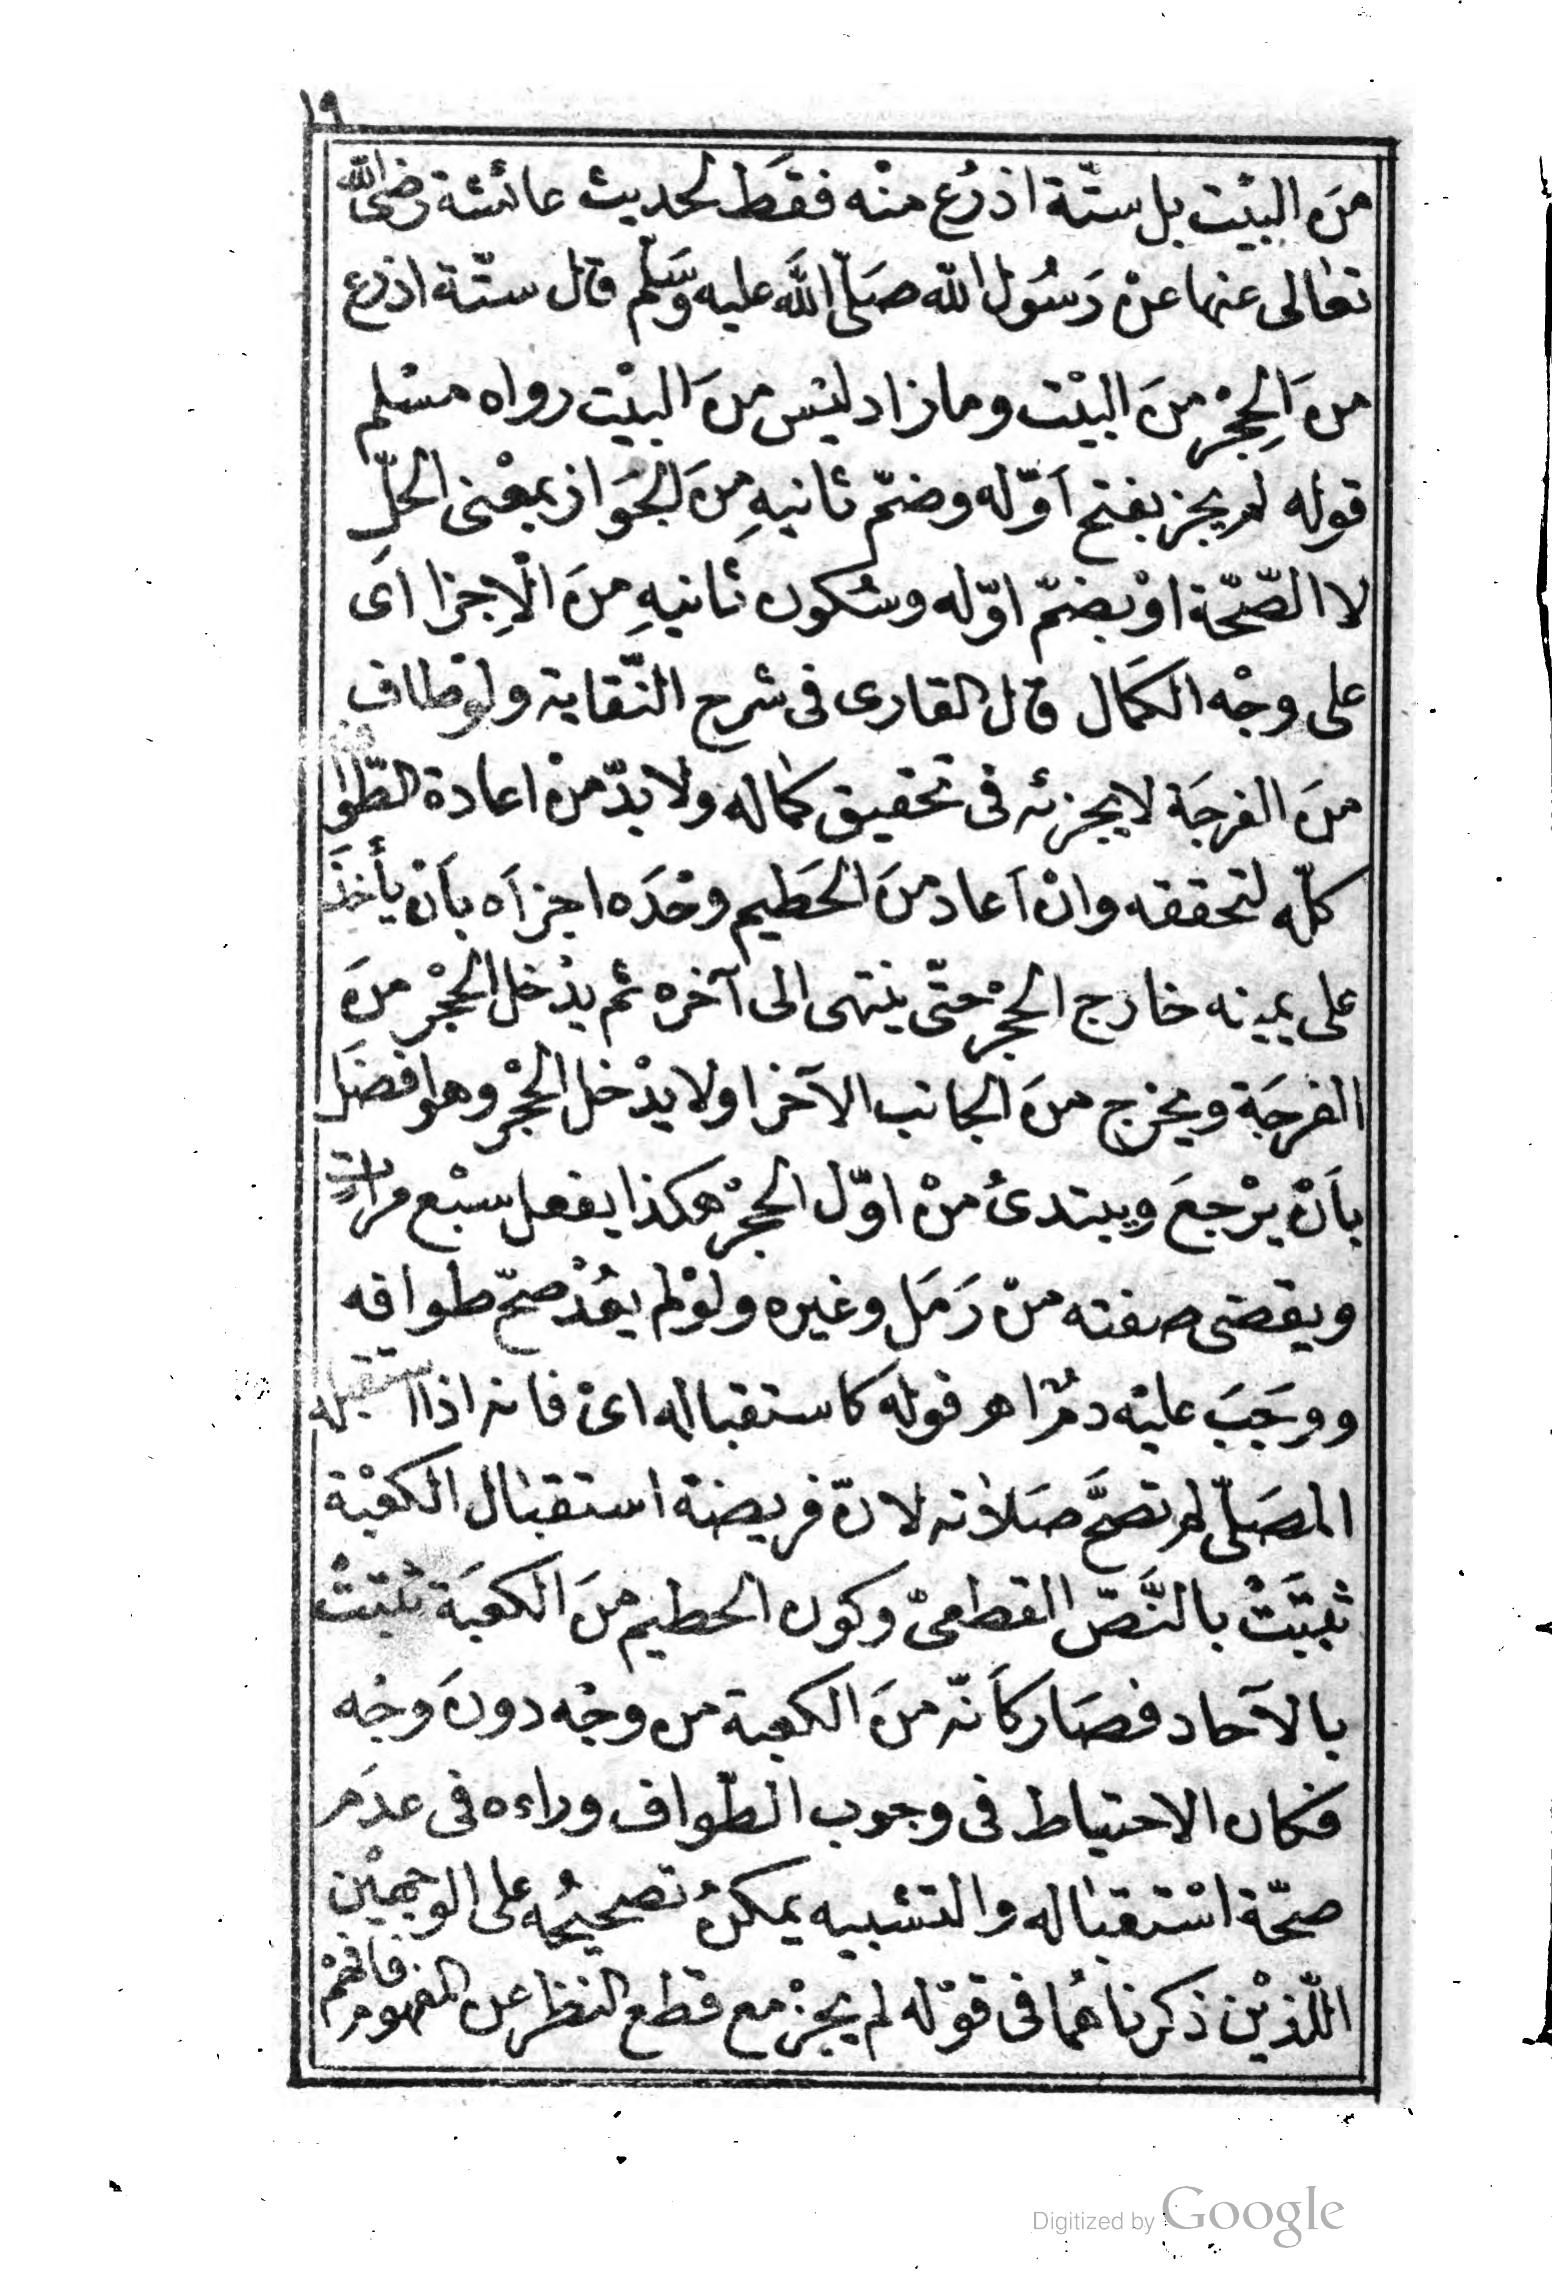 ١٩
منَ البيْت بل ستّة اذرُع منْه فقَط لحديث عائشة رضى الله
تعالى عنها عنْ رَسُول الله صَلّى اللهَ عليه وَسَلّم قال ستّة اذرع
منَ الحِجْر منَ البيْت وما زاد ليْس منَ البيْت رواه مسْلم
قوله لم يجز بفتح اَوّله وضمّ ثانيهِ منَ الجَواز بمعْنى الحلّ
لا الصّحّة اوْ بضمّ اوّله وسُكون ثانيهِ منَ الْاِجزا اَى
على وجْه الكمَال قال القارى فى شرح النّقاية ولوْ طاف
منَ الفرجَة لا يجزئه فى تحقيق كماله ولا بدّ منْ اعادة الطّوا
كلّه لتحققه وانْ اَعاد منَ الحَطيم وحْدَه اجزاَه باَنْ يأخذَ
على يمينه خارج الحِجْر حتّى ينتهى الى آخره ثم يدْخل الحِجْر منَ
الفرجَة ويخرج منَ الجانب الآخر او لا يدْخل الحِجْر وهو افضَل
باَنْ يرْجعَ ويبتدئُ منْ اوّل الحِجْر هكذا يفعل سبْع مرات
ويقضى صفته منْ رَمَل وغيره ولوْ لم يعُدْ صحّ طوافه
ووجَبَ عليْه دمٌ اهـ قوله كاستقباله اىْ فانه اذا استقبله
المصَلّى لم تصحَّ صَلاته لانّ فريضة استقبال الكعْبة
ثبتَتْ بالنَّصّ القطعىّ وكون الحطيم منَ الكعبَة ثبتتْ
بالآحاد فصَار كاَنّه منَ الكعبة من وجْه دونَ وجْه
فكان الاحتياط فى وجوب الطّواف وراءه فى عدَم
صحّة اسْتقباله والتشبيه يمكنُ تصحيحُه على الوجهيْن
اللّذيْن ذكرناهُما فى قوْله لم يجزْ مع قطع النظر عن المفهوم فافهمْ
Digitized by Google